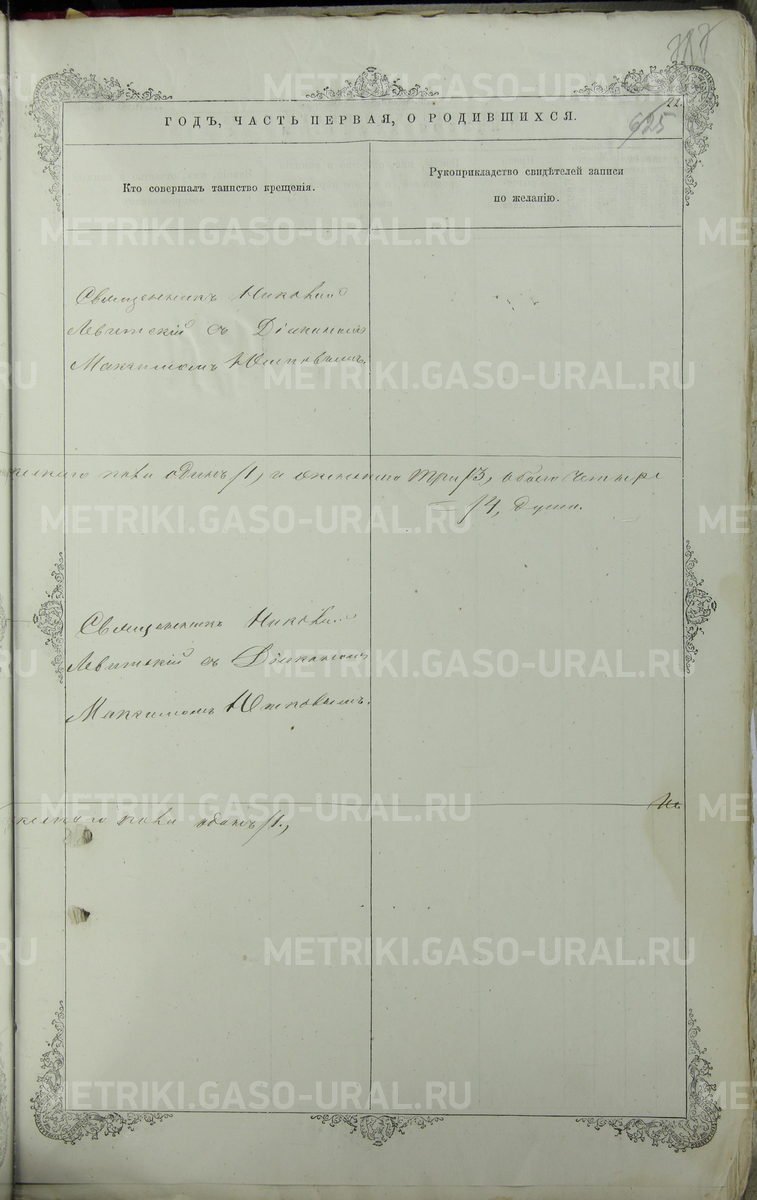 22.
625
ГОДЪ, ЧАСТЬ ПЕРВАЯ, О РОДИВШИХСЯ.
Кто совершалъ таинство крещенія.
Рукоприкладство свидѣтелей записи
по желанію.
Священникъ Николай
Левитскій съ Діякономъ
Максимомъ
пола одинъ /1, и женскаго три /3, обоего четыре
/4, душа.
Священникъ Николай
Левитскій съ Діякономъ
Максимомъ
пола одинъ /1.,
METRIKI.GASO-URAL.RU